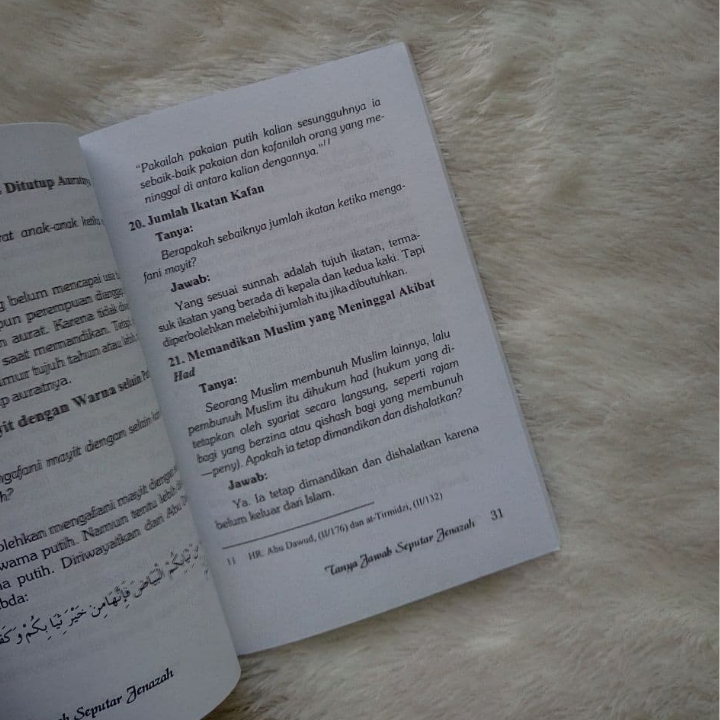 Ditutup
rat anak-anak ketika
g belum mencapai usia
pun perempuan
n aurat. Karena tidak
saat memandikan. Tetapi
umur tujuh tahun atau lebih
p auratnya.
yit dengan Warna selain
ngafani mayit dengan selain
h?
olehkan mengafani mayit dengan
warna putih. Namun tentu lebih
na putih. Diriwayatkan dari Abu
bda:
ثِيَابِكُمُ الْبَيَاضَ فَإِنَّهَا مِنْ خَيْرِ ثِيَابِكُمْ وَ
ab Seputar Jenazah
“Pakailah pakaian putih kalian sesungguhnya ia
sebaik-baik pakaian dan kafanilah orang yang me-
ninggal di antara kalian dengannya.”11
20. Jumlah Ikatan Kafan
Tanya:
Berapakah sebaiknya jumlah ikatan ketika menga-
fani mayit?
Jawab:
Yang sesuai sunnah adalah tujuh ikatan, terma-
suk ikatan yang berada di kepala dan kedua kaki. Tapi
diperbolehkan melebihi jumlah itu jika dibutuhkan.
21. Memandikan Muslim yang Meninggal Akibat
Had
Tanya:
Seorang Muslim membunuh Muslim lainnya, lalu
pembunuh Muslim itu dihukum had (hukum yang di-
tetapkan oleh syariat secara langsung, seperti rajam
bagi yang berzina atau qishash bagi yang membunuh
—peny). Apakah ia tetap dimandikan dan dishalatkan?
Jawab:
Ya. Ia tetap dimandikan dan dishalatkan karena
belum keluar dari Islam.
11 HR. Abu Dawud, (II/176) dan at-Tirmidzi, (II/132)
Tanya Jawab Seputar Jenazah 31